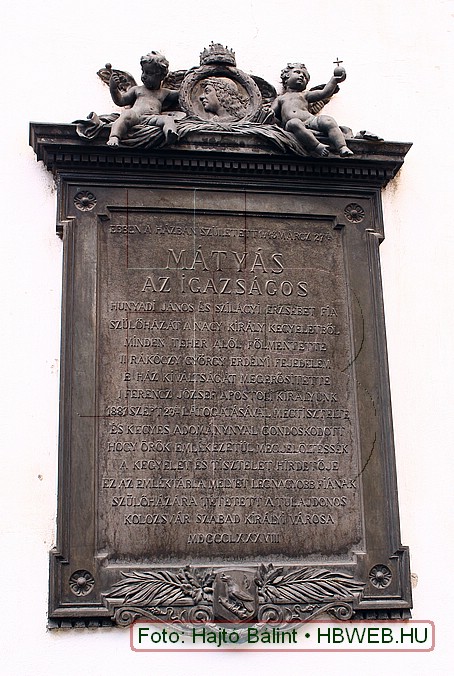 EBBEN A HÁZBAN SZÜLETETT 1443 MÁRCZ 27-N
MÁTYÁS
AZ IGAZSÁGOS
HUNYADI JÁNOS ÉS SZILÁGYI ERZSÉBET FIA
SZÜLŐHÁZÁT A NAGY KIRÁLY KEGYELETBŐL
MINDEN TEHER ALÓL FÖLMENTETTE
II RÁKÓCZY GYÖRGY ERDÉLYI FEJEDELEM
E HÁZ KIVÁLTSÁGÁT MEGERŐSÍTETTE
I FERENCZ JÓZSEF APOSTOLI KIRÁLYUNK
ÉS KEGYES ADOMÁNYNYAL GONDOSKODOTT
HOGY ÖRÖK EMLÉKEZETÜL MEGJELÖLTESSÉK
A KEGYELET ÉS TISZTELET HIRDETŐJE
EZ AZ EMLÉKTÁBLA MELYET LEGNAGYOBB FIÁNAK
SZÜLŐHÁZÁRA TÉTETETT A TULAJDONOS
KOLOZSVÁR SZABAD KIRÁLYI VÁROSA
MDCCCLXXXVIII
Fotó: Hajtó Bálint • HBWEB.HU